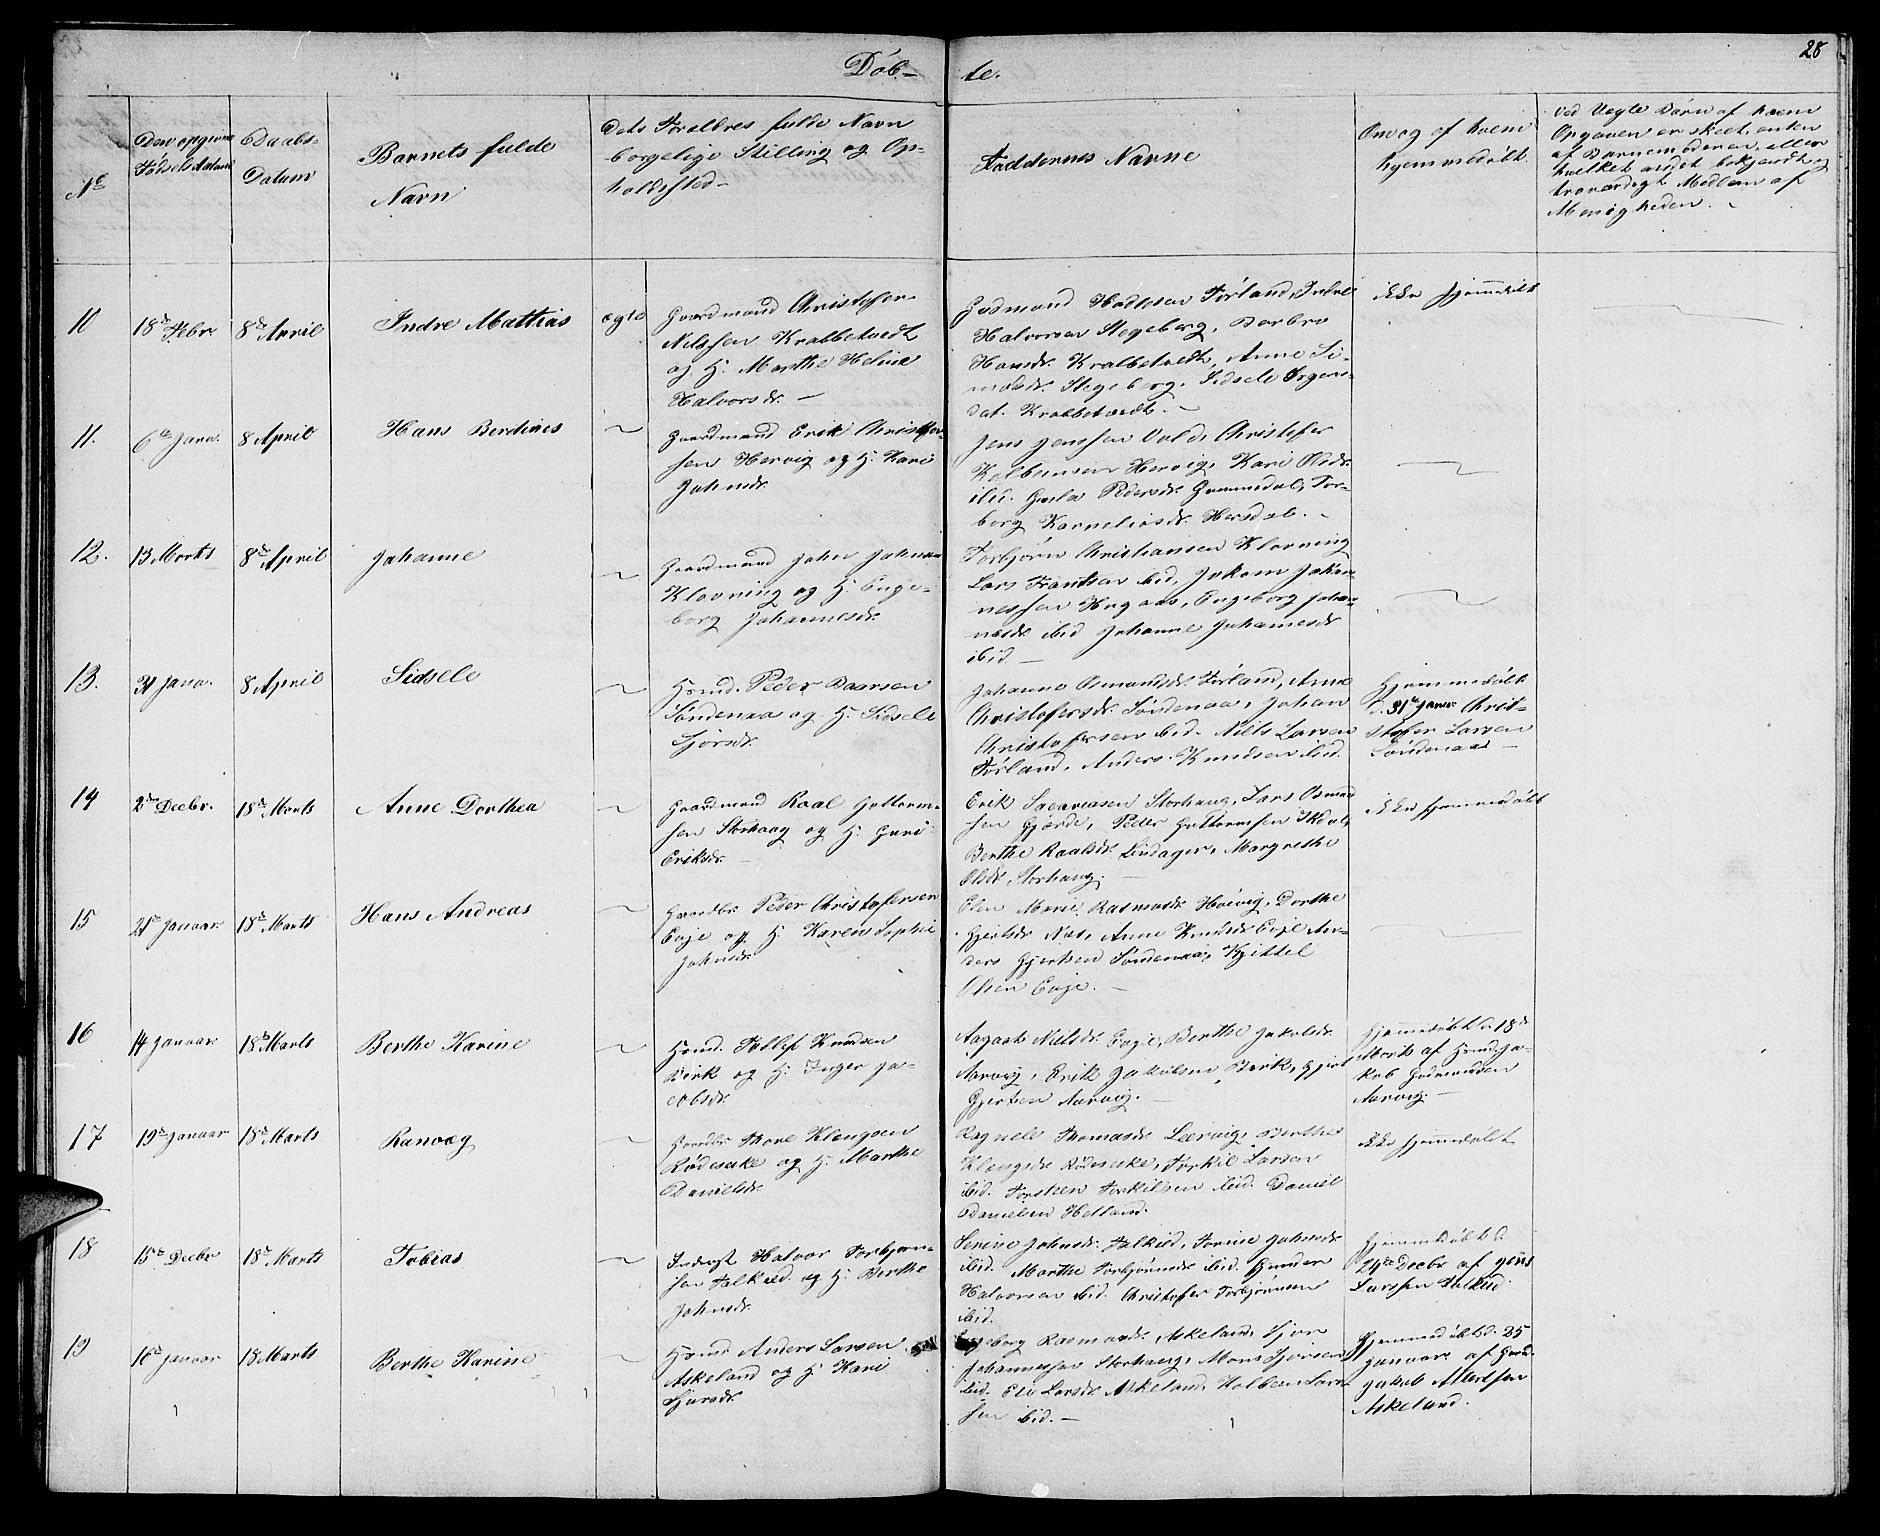 28
Døb-
te.
No
Den opgivne
Fødsels Datum
Daabs-
Datum
Barnets fulde
Navn
Dets Forældres fulde Navn
borgelige Stilling og Op-
holdssted-
Faddernes Navne
Om og af hvem
hjemmedøbt.
Ved Uægte Børn af hvem
Opgaven er skeet, enten
af Barnemoderen, eller
hvilket andet bekjendt og
troværdigt Medlem af
Menigheden.
10
18de Febr
8de April
Indre Mathias
ægte
Gaardmand Christofer
Nilssen Krabbetvedt
og H: Marthe Heline
Halvorsdr. —
Gudmand Hadlesen Førland,
Halvorsen Stegeberg, Barbro
Hansdr. Krabbetvedt, Anne Si-
monsdr. Stegeberg, Sidsele
dat. Krabbetvedt. -
ikke hjemmedøbt
11.
6te Janu.
8 April
Hans Berdines
Gaardmand Erik Christofer-
sen Hervig og H: Kari
Johnsdr.
Jens Jenssen Vold, Christofer
Kolbensen Hervig, Kari Olsdr.
ibid. Pedersdr. Gummedal, Tor-
borg Karneliusdr. Hersdal. -
12.
13 Marts
8de April
Johanne
Gaardmand John Johnsen
Klovning og H: Enge-
borg Johannesdr.
Torbjørn Christiansen Klovning
Lars Frantsen ibid, Jokom Johan-
nessen Hugaas, Engeborg Johan-
nesdr ibid Johanne Johannesdr
ibid —
13.
31 Janu.
8 April
Sidsele
Hsmd. Peder Baarsen
Søndenaa og H: Sidsele
Sjørsdr.
Johanne Osmundsdr. Førland, Anne
Christofersdr. Søndenaa, Johan
Christofersen ibid. Niels Larsen
Førland, Anders Knudsen ibid.
Hjemmedøbt
d. 31te Janu. Chris-
tofer Larsen
Søndenaa —
14
2den Decbr.
18de Marts
Anne Dorthea
Gaardmand Roal Guttorm-
sen Storhaug og H: Guri
Eriksdr. —
Erik Sacariasen Storhaug, Lars Osmund
sen Gjærde, Peder Guttormsen
Berthe Roalsdr. Lindager, Margrethe
Olsdr. Storhaug. —
ikke hjemmedøbt
15
21de Januar.
18de Marts
Hans Andreas
Gaardbr. Peder Christofersen
Evje og H: Karen Sophie
Johnsdr.
Elen Marie Rasmusdr. Høivig, Dorthe
Gjertsdr. Næs, Anne Knudsdr. Evje An-
ders Gjertsen Søndenaa, Kjittel
Olsen Evje. —
16
14 Januar
18de Marts
Berthe Karine
Hsmd. Tollef Knudsen
Birk og H: Inger Ja-
cobsdr.
Aagaat Nilsdr. Evje, Berthe Jakobsdr.
Aarvig, Erik Jakobsen Birk, Gjert
Gjertsen Aarvig. —
Hjemmedøbt d. 18de
Marts af Hsmd. Ja-
kob Gudmundsen
Aarvig. —
17
19de Januar
18de Marts
Ranvæg
Gaardbr Thore Klengsen
Rødesike og H: Marthe
Danielsdr.
Ragnele Thomasdr. Leervig, Berthe
Klengsdr. Rødesike, Torkil Larsen
ibid. Torsten Torkilsen ibid. Daniel
Danielsen Hetland.
ikke hjemmedøbt
18
15de Decbr
18de Marts
Tobias
Inderst Halvor Torbjørn-
sen Falkeid og H: Berthe
Johnsdr.
Serine Johnsdr. Falkeid, Torine Johnsdr
ibid. Marthe Torbjørnsdr. ibid. Gunder
Halvorsen ibid. Christofer Torbjørnsen
ibid.
Hjemmedøbt d.
24de Decbr af Jens
Larssen Falkeid.
19
16de Januar
18 Marts
Berthe Karine
Hsmd Anders Larsen
Askeland og H: Kari
Sjursdr.
Engeborg Rasmusdr. Askeland, Sjur
Johannessen Storhaug, Mons Sjursen
ibid. Eli Larsdr. Askeland, Kolben Lar-
sen ibid. —
Hjemmedøbt d. 25
Januar af Hsmd.
Jakob Albertsen
Askeland.